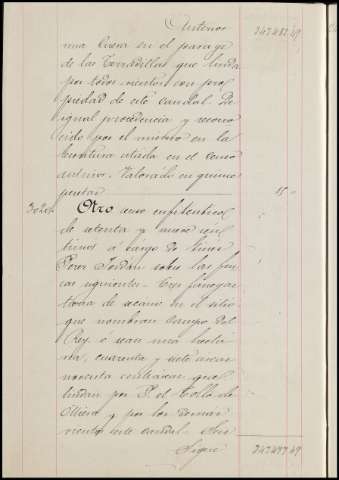 Anterior 747482'49
una linea en el parage
de las Torradillas que linda
por todos vientos con pro
piedad de este caudal. De
igual procedencia y recono
cido por el mismo en la
escritura citada en el censo
anterior. Valorado en quince
pesetas 15 "
Otro censo enfiteutico
de setenta y un cen
timos á cargo de
Perez Jordán sobre las fin
cas siguientes. Tres
de secano en el sitio
que nombran Campo del
Rey, ó sean una hecta
rea, cuarenta y siete areas
noventa centiareas que
lindan por P. el Collado
y por los demas
vientos este caudal. Seis
Sigue 747497'49